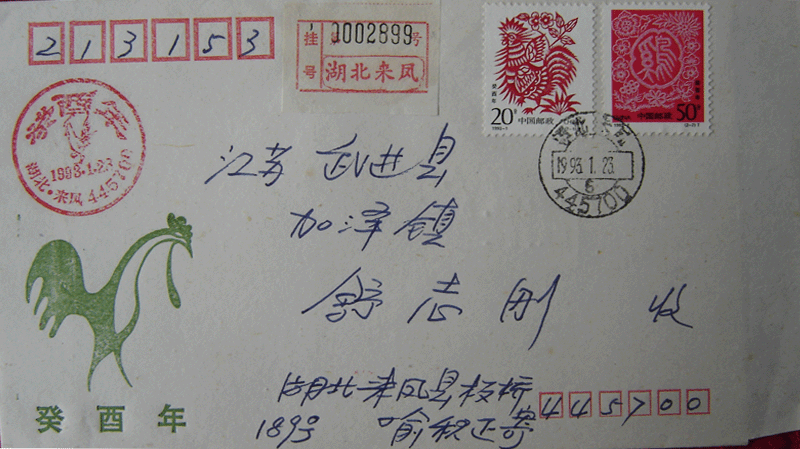 213153
挂 0002899 号
号 湖北来凤
癸酉年
20分 中国邮政
1993-1
癸酉年
50分 中国邮政
癸酉年
1993.1.23
湖北·来凤445700
1993.1.23.
6
445700
江苏 武进县
加泽镇
舒志刚 收
癸酉年
湖北来凤县板桥
189号 喻积正寄
445700